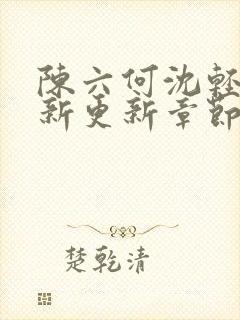 陳六何沈輕
新更新章節
楚乾清